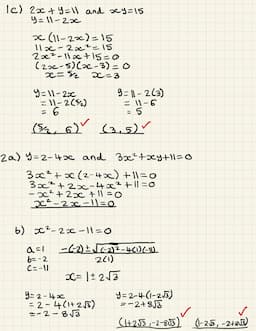 1c) 2x + y = 11 and xy = 15
y = 11 - 2x
x(11 - 2x) = 15
11x - 2x² = 15
2x² - 11x + 15 = 0
(2x - 5)(x - 3) = 0
x = 5/2 x = 3
y = 11 - 2x y = 11 - 2(3)
= 11 - 2(5/2) = 11 - 6
= 6 = 5
(5/2, 6) ✓ (3, 5) ✓
2a) y = 2 - 4x and 3x² + xy + 11 = 0
3x² + x(2 - 4x) + 11 = 0
3x² + 2x - 4x² + 11 = 0
-x² + 2x + 11 = 0
x² - 2x - 11 = 0
b) x² - 2x - 11 = 0
a = 1
b = -2
c = -11
-(-2) ± √(-2)² - 4(1)(-11)
2(1)
x = 1 ± 2√3
y = 2 - 4x y = 2 - 4(1 - 2√3)
= 2 - 4(1 + 2√3) = -2 + 8√3
= -2 - 8√3
(1 + 2√3, -2 - 8√3) (1 - 2√3, -2 + 8√3)